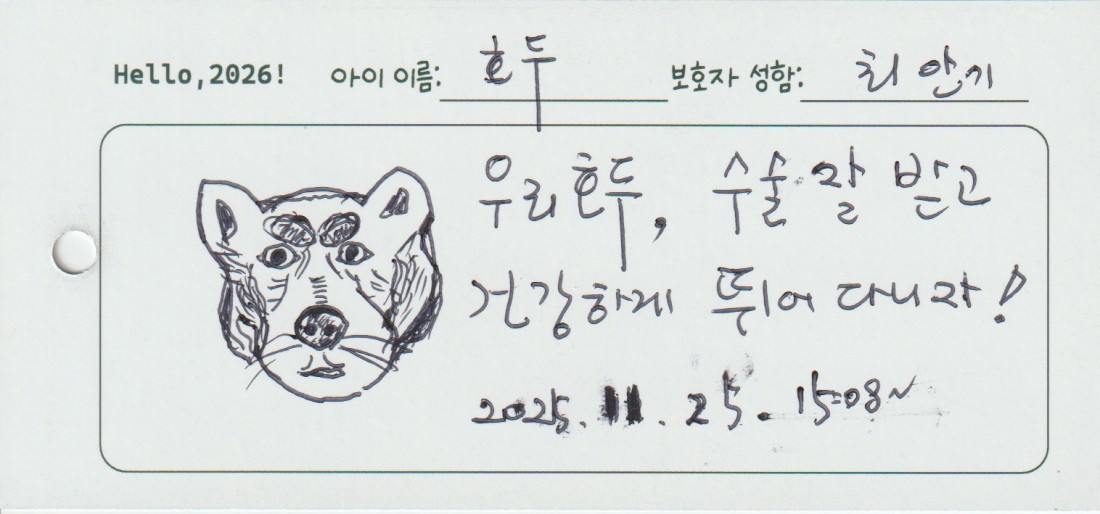 Hello,2026! 아이 이름: 호두 보호자 성함: 최안기
우리 호두, 수술 잘 받고
건강하게 뛰어 다니자!
2025. 11. 25. 15:08~